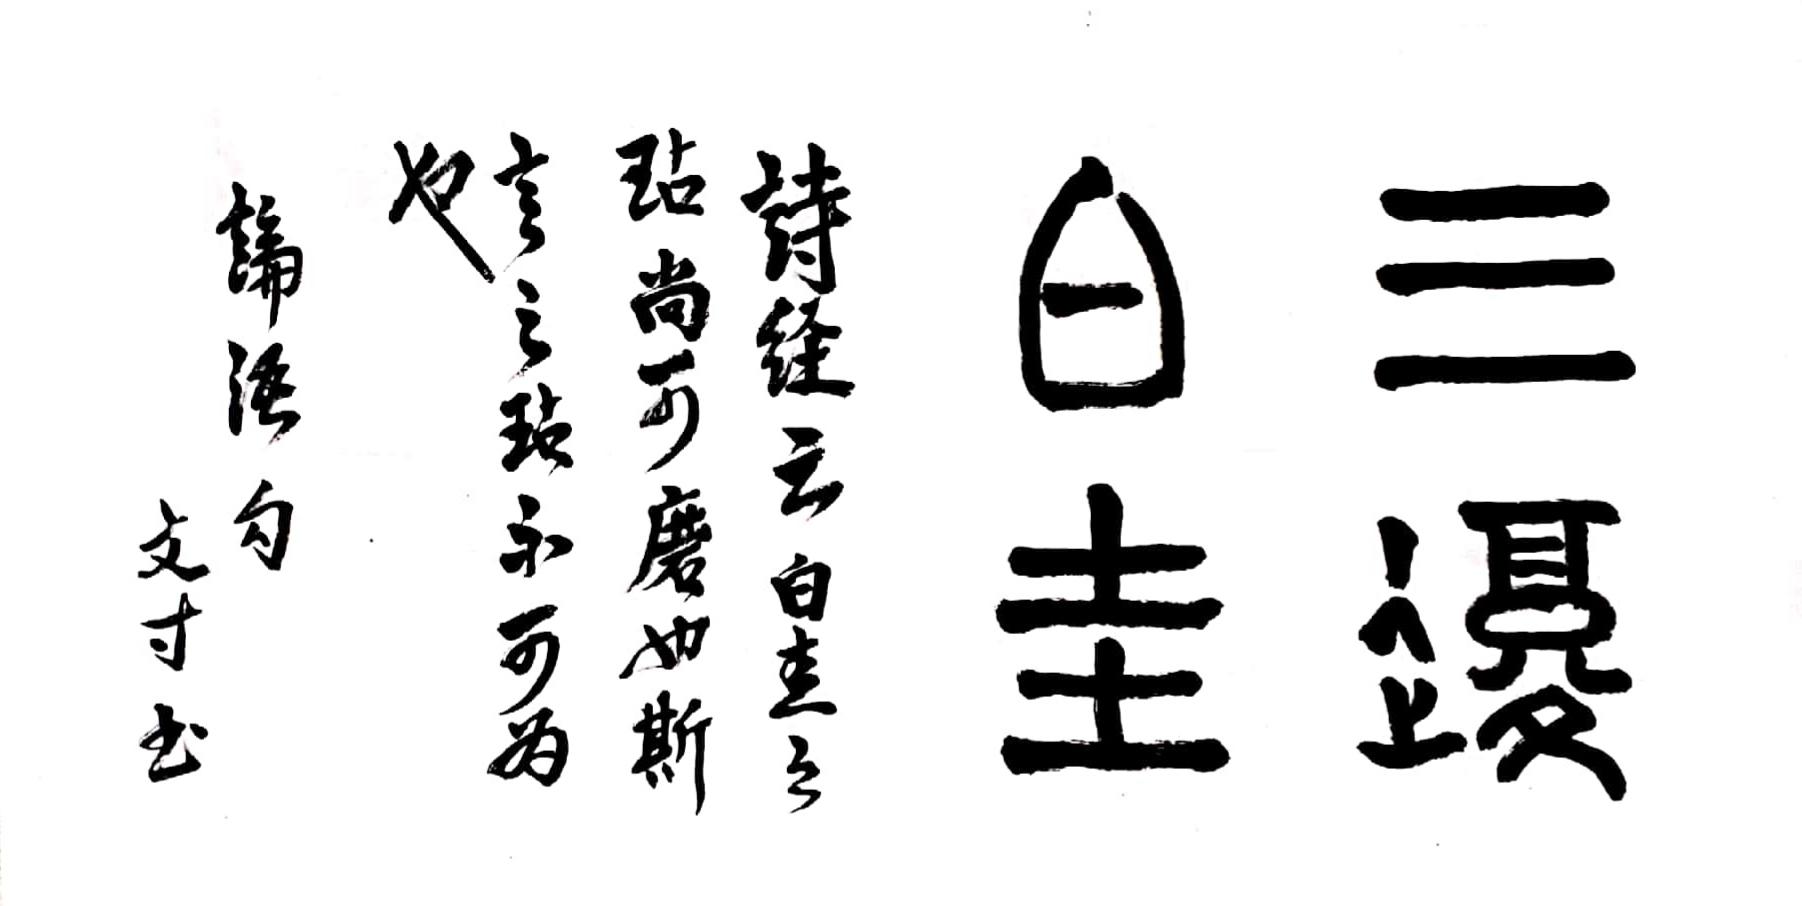 三復
白圭
詩経云白圭之
玷尚可磨也斯
言之玷不可为
也
論語句
文寸书